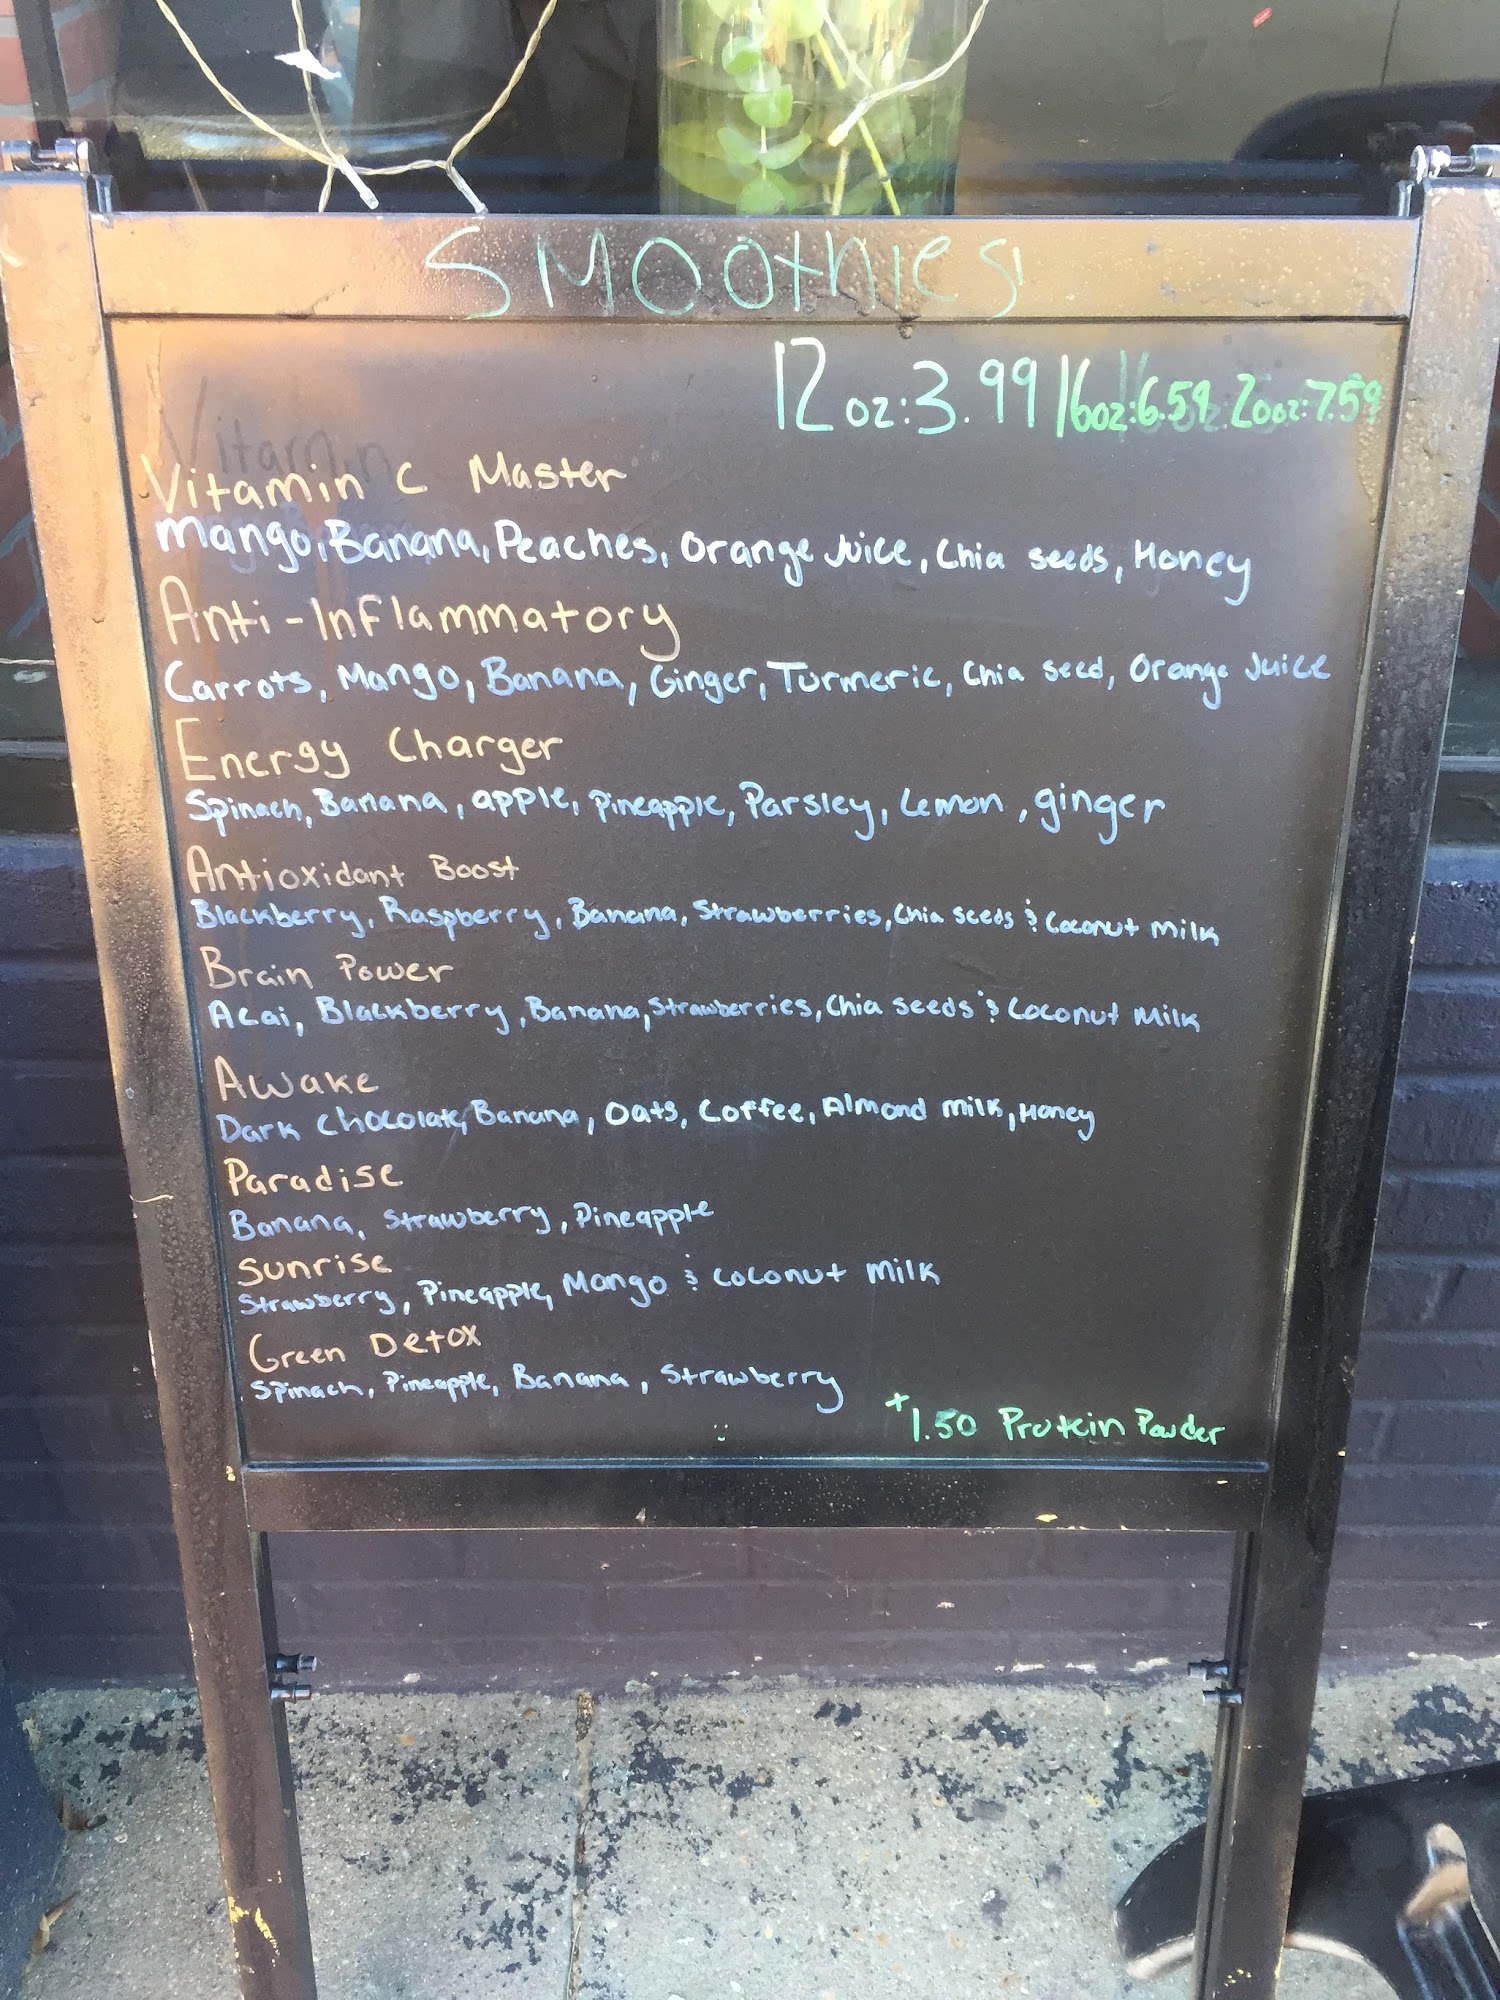 SMOOthies
12oz:3.99 16oz:6.59 20oz:7.59
Vitamin
Vitamin C Master
Mango, Banana, Peaches, Orange Juice, Chia seeds, Honey
Anti-Inflammatory
Carrots, Mango, Banana, Ginger, Turmeric, Chia seed, Orange Juice
Energy Charger
Spinach, Banana, apple, Pineapple, Parsley, Lemon, ginger
Antioxidant Boost
Blackberry, Raspberry, Banana, Strawberries, Chia seeds & Coconut Milk
Brain Power
Acai, Blackberry, Banana, Strawberries, Chia seeds & Coconut Milk
Awake
Dark Chocolate, Banana, Oats, Coffee, Almond milk, Honey
Paradise
Banana, Strawberry, Pineapple
Sunrise
Strawberry, Pineapple, Mango & Coconut Milk
Green Detox
Spinach, Pineapple, Banana, Strawberry
+1.50 Protein Powder